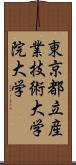 東京都立産
業技術大学
院大学